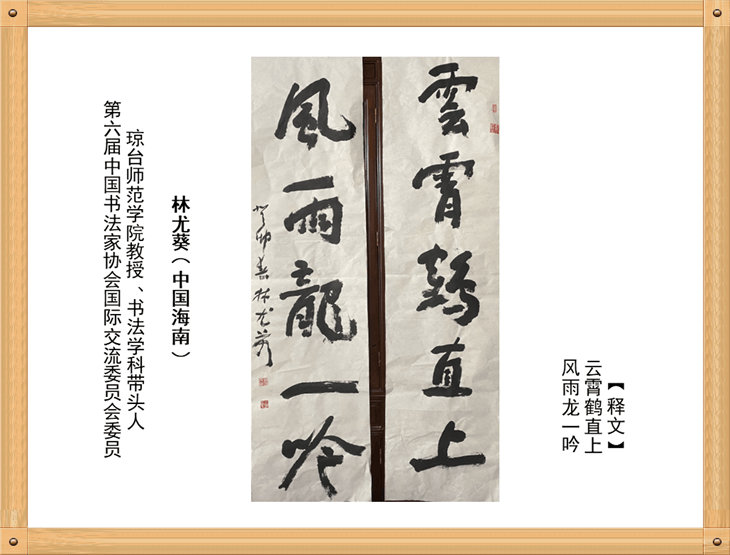 【释文】
云霄鹤直上
风雨龙一吟
雲霄鶴直上
風雨龍一吟
癸卯春林尤葵
林尤葵（中国海南）
琼台师范学院教授、书法学科带头人
第六届中国书法家协会国际交流委员会委员